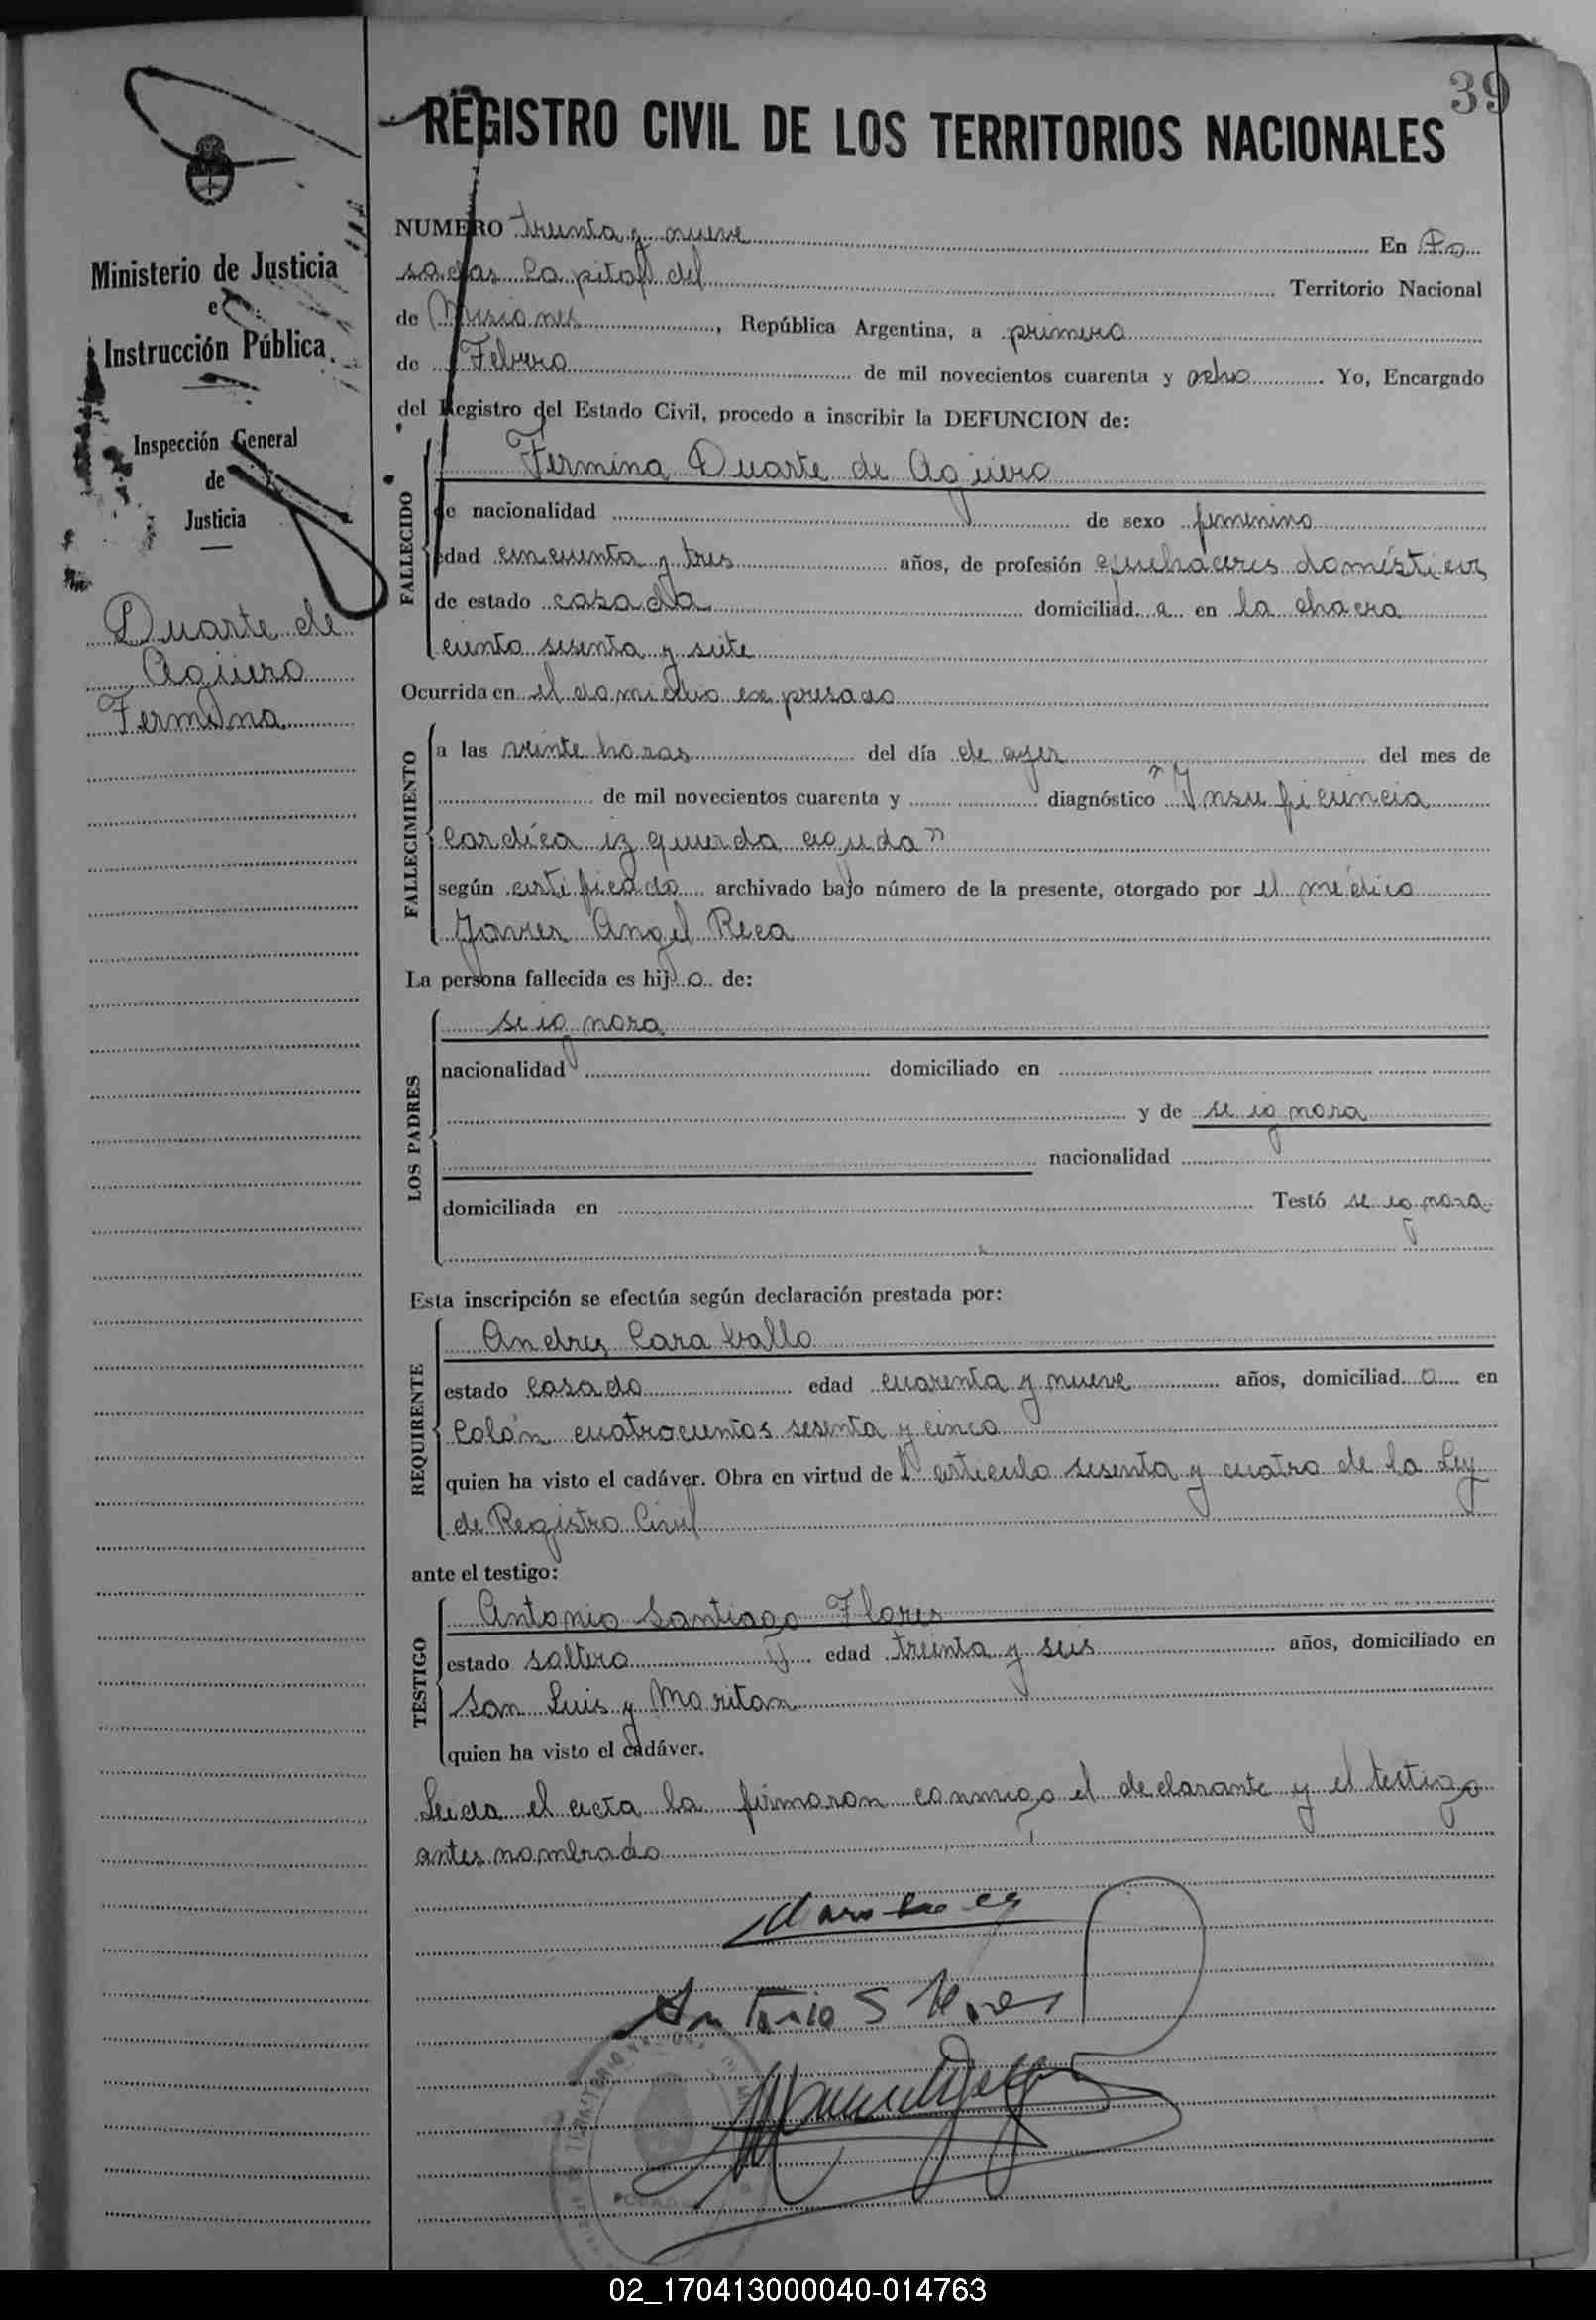 39
REGISTRO CIVIL DE LOS TERRITORIOS NACIONALES
Ministerio de Justicia
e
Instrucción Pública
Inspección General
de
Justicia
Duarte de
Agüero
Fermina
NUMERO treinta y nueve En Po
sadas Capital del Territorio Nacional
de Misiones, República Argentina, a primero
de Febrero de mil novecientos cuarenta y ocho. Yo, Encargado
del Registro del Estado Civil, procedo a inscribir la DEFUNCION de:
FALLECIDO
Fermina Duarte de Agüero
de nacionalidad de sexo femenino
edad cincuenta y tres años, de profesión quehaceres domésticos
de estado casada domiciliad a en la chacra
ciento sesenta y siete
Ocurrida en el domicilio expresado
FALLECIMIENTO
a las veinte horas del día de ayer del mes de
de mil novecientos cuarenta y diagnóstico "Insuficiencia
Cardíca izquierda aguda"
según certificado archivado bajo número de la presente, otorgado por el médico
Javier Angel Reca
La persona fallecida es hij a de:
LOS PADRES
se ignora
nacionalidad domiciliado en
y de se ignora
nacionalidad
domiciliada en Testó se ignora
Esta inscripción se efectúa según declaración prestada por:
REQUIRENTE
Andres Caraballo
estado casado edad cuarenta y nueve años, domiciliad o en
Colón cuatrocientos sesenta y cinco
quien ha visto el cadáver. Obra en virtud del artículo sesenta y cuatro de la Ley
de Registro Civil
ante el testigo:
TESTIGO
Antonio Santiago Flores
estado soltero edad treinta y seis años, domiciliado en
San Luis y Moritan
quien ha visto el cadáver.
Leida el acta la firmaron conmigo el declarante y el testigo
antes nombrado
Antonio S Flores
02_170413000040-014763